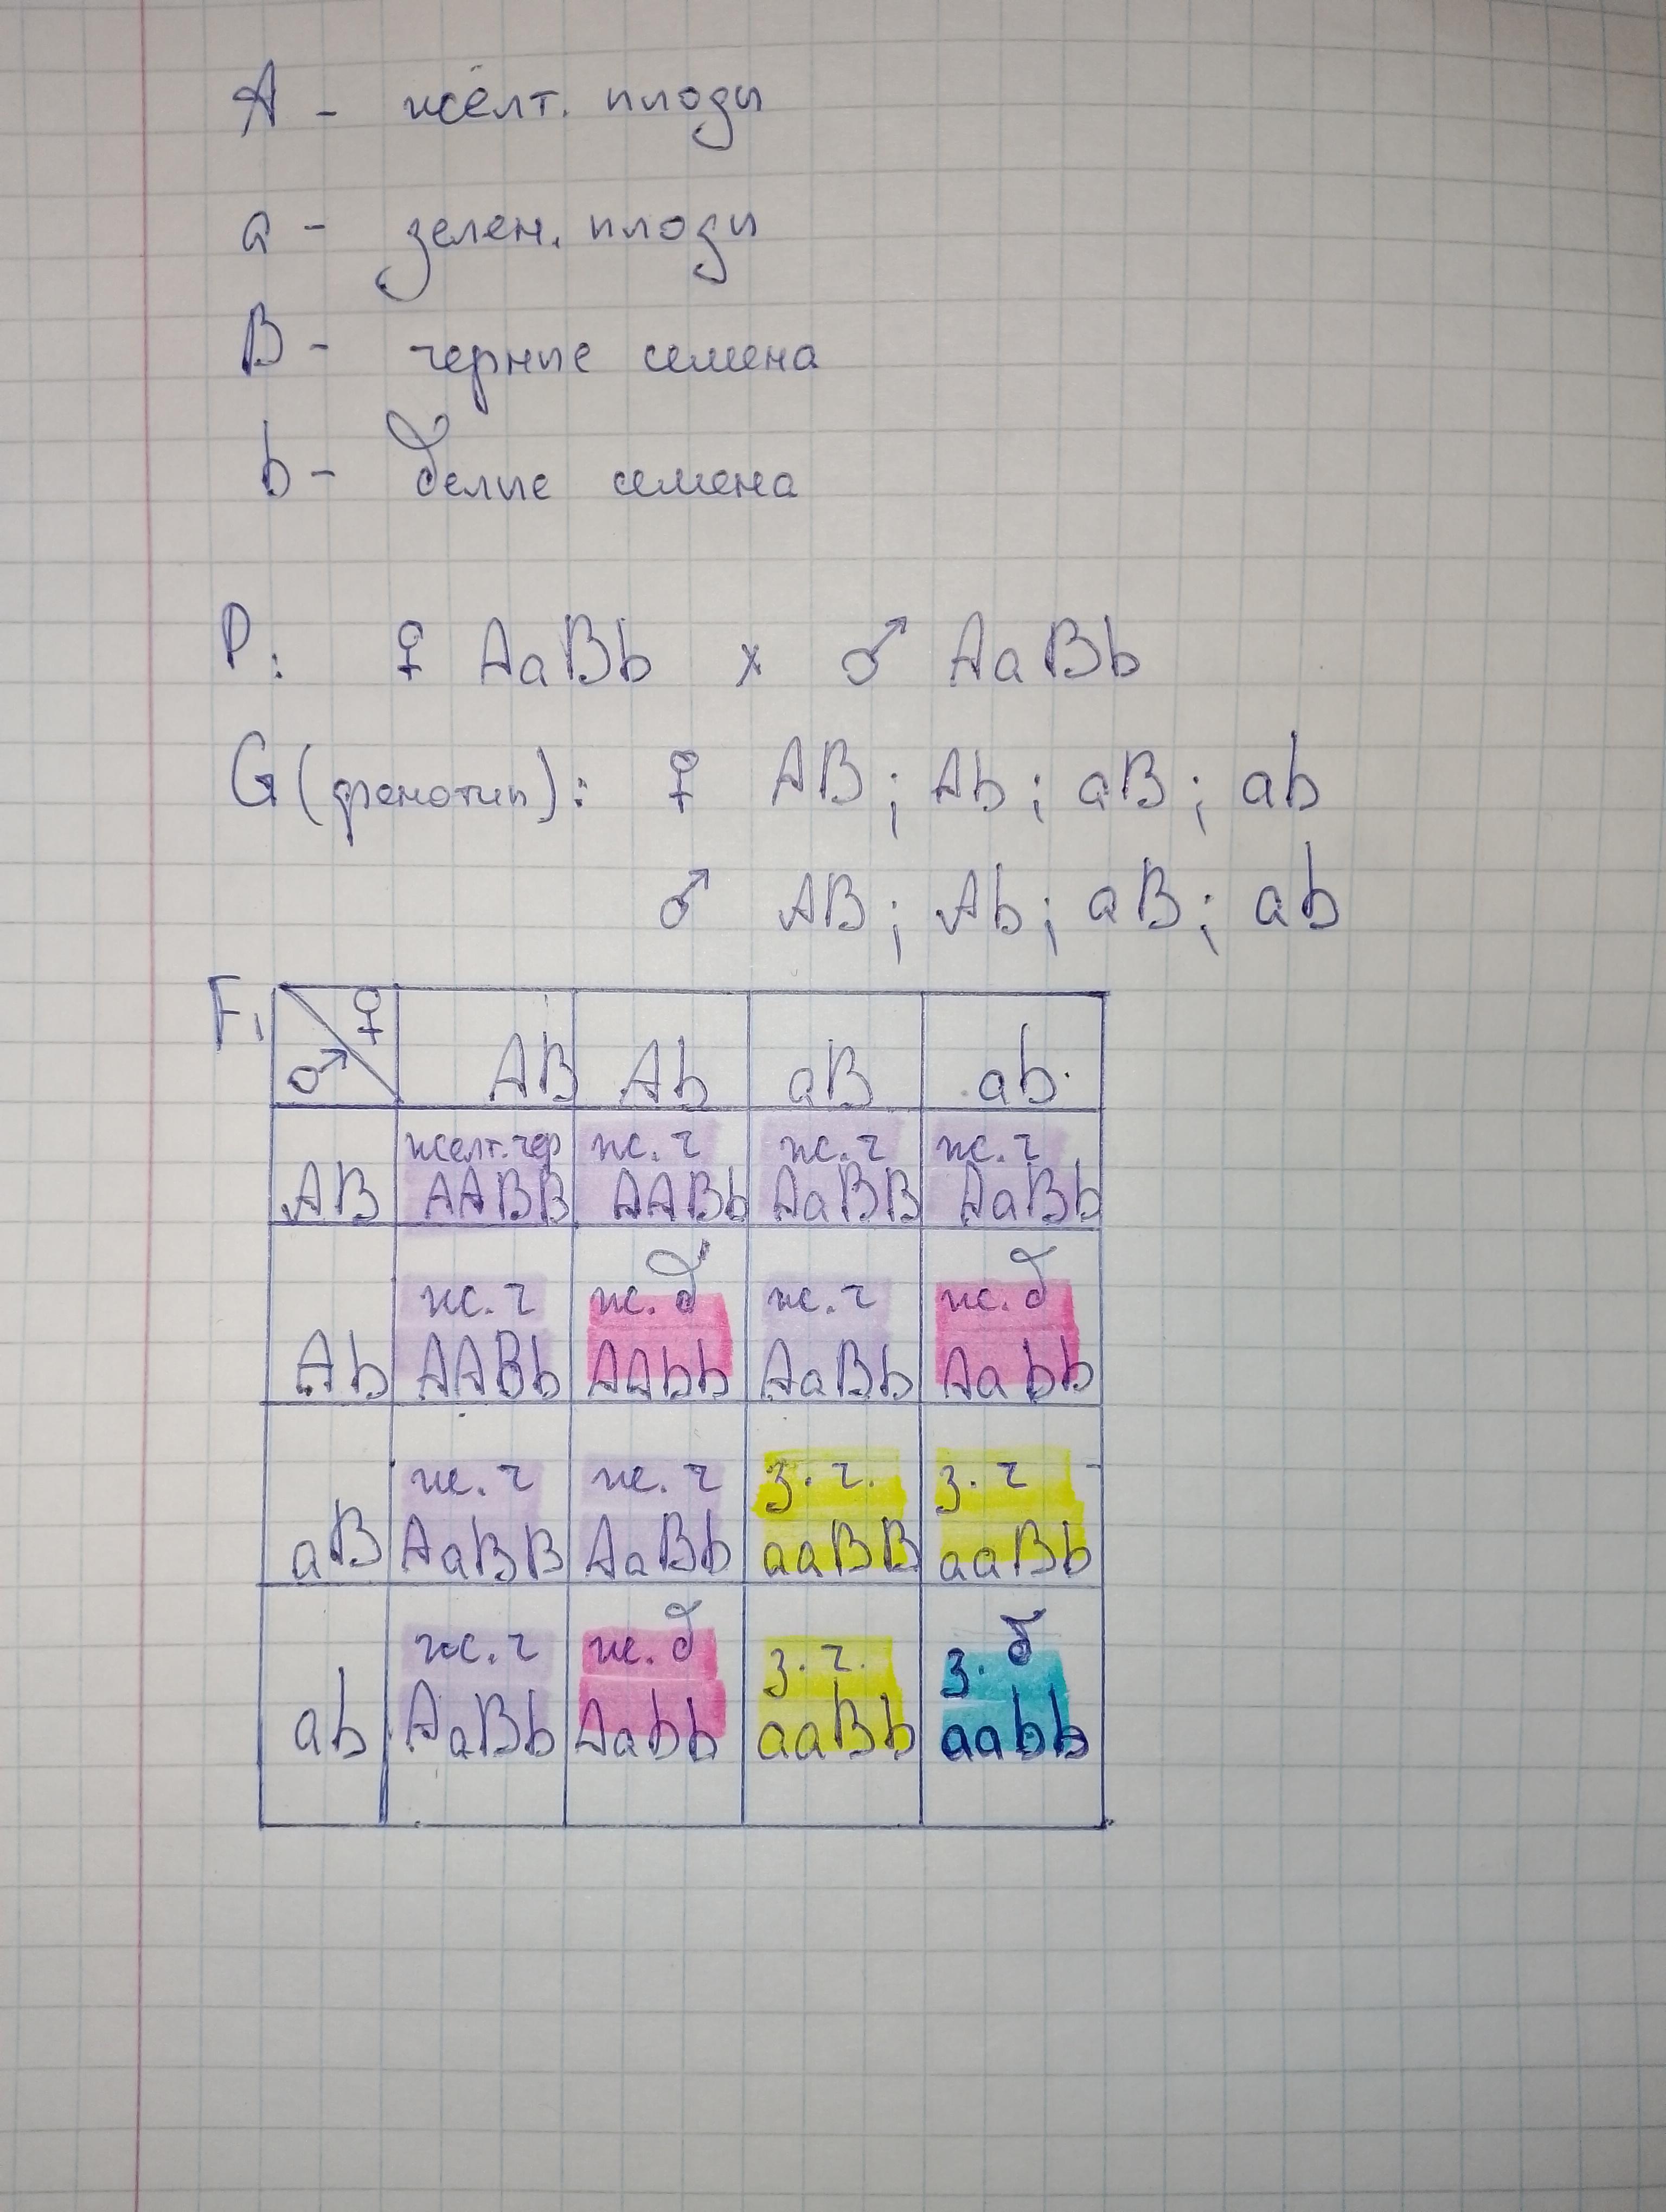 A - жёлт. плоды
a - зелен. плоды
B - черные семена
b - белые семена
P: ♀ AaBb x ♂ AaBb
G (фенотип): ♀ AB; Ab; aB; ab
♂ AB; Ab; aB; ab
F₁ ♂ ♀ AB Ab aB ab
желт. чер ж. ч ж. ч ж. ч
AB AABB AABb AaBB AaBb
ж. ч ж. б ж. ч ж. б
Ab AABb AAbb AaBb Aabb
ж. ч ж. ч з. ч. з. ч
aB AaBB AaBb aaBB aaBb
ж. ч ж. б з. ч. з. б
ab AaBb Aabb aaBb aabb